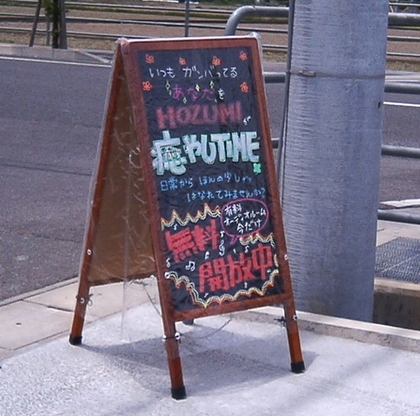 いつも ガンバってる
あなたを
HOZUMI
癒やしTiME
日常から ほんの少し
はなれてみませんか?
有料
オーディオルーム
今だけ
無料
開放中